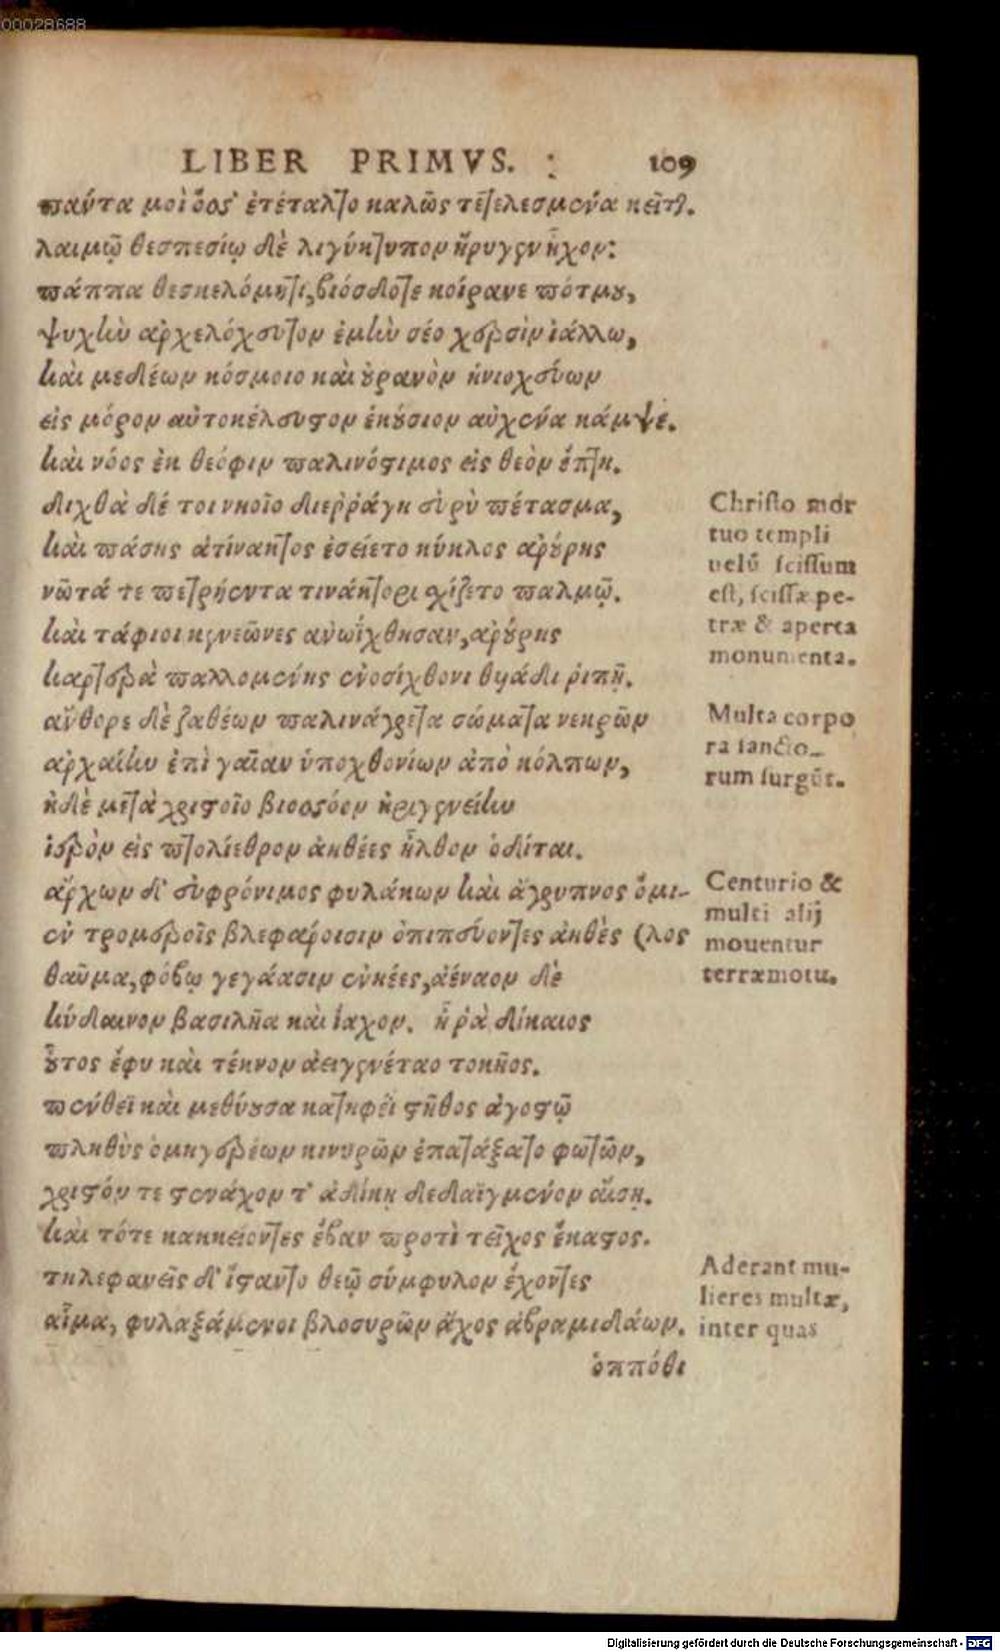 00028688
LIBER PRIMVS. : 109
πάντα μοι ὅσσ' ἐτέταλτο καλῶς τετελεσμένα κεῖται.
λαιμῷ θεσπεσίῳ δὲ λιγύκτυπον ἤρυγεν ἦχον:
πάππα θεσκελόμητι, βιόσδοτε κοίρανε πότμου,
ψυχὴν ἀρχελόχευτον ἐμὴν σέο χερσὶν ἰάλλω,
καὶ μεδέων κόσμοιο καὶ οὐρανὸν ἡνιοχεύων
εἰς μόρον αὐτοκέλευστον ἑκούσιον αὐχένα κάμψε.
καὶ νόος ἐκ θεόφιν παλινόστιμος εἰς θεὸν ἔπτη.
διχθὰ δέ τοι νηοῖο διεῤῥάγη εὐρὺ πέτασμα,
καὶ πάσης ἀτίνακτος ἐσείετο κύκλος ἀρούρης
νῶτά τε πετρήεντα τινάκτορι σχίζετο παλμῷ.
καὶ τάφιοι κενεῶνες ἀνωΐχθησαν, ἀρούρης
καρτερὰ παλλομένης ἐνοσίχθονι θυάδι ῥιπῇ.
ἄνθορε δὲ ζαθέων παλινάγρετα σώματα νεκρῶν
ἀρχαίην ἐπὶ γαῖαν ὑποχθονίων ἀπὸ κόλπων,
ἠδὲ μετὰ χριστοῖο βιοσσόον ἠριγενείην
ἱερὸν εἰς πτολίεθρον ἀηθέες ἦλθον ὁδῖται.
ἄρχων δ' εὐφρόνιμος φυλάκων καὶ ἄγρυπνος ὅμι-
ἐν τρομεροῖς βλεφάροισιν ὀπιπεύοντες ἀηθὲς (λος
θαῦμα, φόβῳ γεγάασιν ἐνκέες, ἀέναον δὲ
κύδαινον βασιλῆα καὶ ἴαχον. ἦ ῥὰ δίκαιος
οὗτος ἔφυ καὶ τέκνον ἀειγενέταο τοκῆος.
πένθεϊ καὶ μεθύουσα κατηφέϊ στῆθος ἀγοστῷ
πληθὺς ὁμηγερέων κινυρῶν ἐπατάξατο φωτῶν,
χριστόν τε στενάχον τ' ἀδίκῃ δεδαϊγμένον αἴσῃ.
καὶ τότε κακκείοντες ἔβαν προτὶ τεῖχος ἕκαστος.
τηλεφανεῖς δ' ἵσταντο θεῷ σύμφυλον ἔχοντες
αἷμα, φυλαξάμενοι βλοσυρῶν ἄχος ἀβραμιδάων.
ὁππόθι
Christo mor
tuo templi
uelū scissum
est, scissæ pe-
træ & aperta
monumenta.
Multa corpo
ra sancto-
rum surgūt.
Centurio &
multi alij
mouentur
terræmotu.
Aderant mu-
lieres multæ,
inter quas
Digitalisierung gefördert durch die Deutsche Forschungsgemeinschaft - DFG